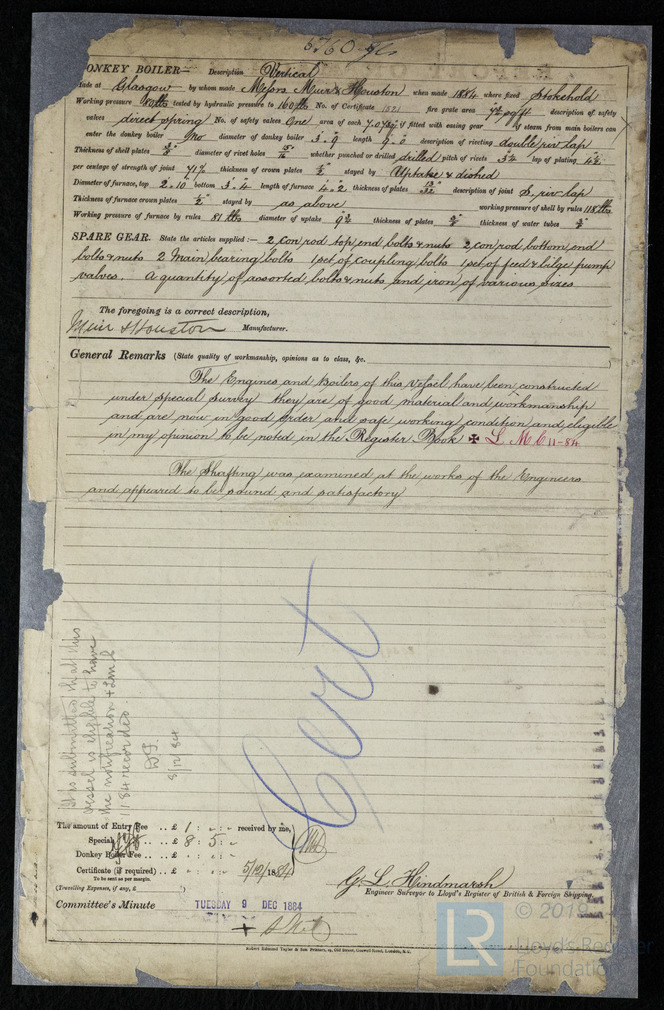 5760 gls
DONKEY BOILER— Description Vertical
Made at Glasgow by whom made Messrs Muir & Houston when made 1884 where fixed Stokehold
Working pressure 80 lbs tested by hydraulic pressure to 160 lbs No. of Certificate 1521 fire grate area 7½ sq ft description of safety
valves direct spring No. of safety valves One area of each 7.07 sq in if fitted with easing gear if steam from main boilers can
enter the donkey boiler No diameter of donkey boiler 3'. 9" length 9'. 0" description of riveting double riv lap
Thickness of shell plates 3/8 diameter of rivet holes 15/16 whether punched or drilled drilled pitch of rivets 3¼ lap of plating 4½
per centage of strength of joint 71% thickness of crown plates ½ stayed by Uptake & dished
Diameter of furnace, top 2'. 10" bottom 3'. 4" length of furnace 4'. 2" thickness of plates 13/32 description of joint S. riv lap
Thickness of furnace crown plates ½" stayed by as above working pressure of shell by rules 118 lbs
Working pressure of furnace by rules 81 lbs diameter of uptake 9½ thickness of plates 3/8 thickness of water tubes 3/8
SPARE GEAR. State the articles supplied:— 2 con rod top end bolts & nuts 2 con rod bottom end
bolts & nuts 2 Main bearing bolts 1 set of coupling bolts 1 set of feed & bilge pump
valves A quantity of assorted bolts & nuts and iron of various sizes
The foregoing is a correct description,
Muir & Houston Manufacturer.
General Remarks (State quality of workmanship, opinions as to class, &c.
The Engines and Boilers of this Vessel have been constructed
under special survey they are of good material and workmanship
and are now in good order and safe working condition and eligible
in my opinion to be noted in the Register Book ✠ L M C 11-84
The Shafting was examined at the works of the Engineers
and appeared to be sound and satisfactory
Cert
It is submitted that this
vessel is eligible to have
the notification + LMC
11 84 recorded
8/12/84
The amount of Entry Fee .. £ 1 : - : - received by me,
Special .. £ 8 : 5 : -
Donkey Boiler Fee .. £ - : - : -
Certificate (if required) .. £ - : - : - 5/12/1884
To be sent as per margin.
(Travelling Expenses, if any, £ )
G. L. Hindmarsh
Engineer Surveyor to Lloyd's Register of British & Foreign Shipping.
Committee's Minute TUESDAY 9 DEC 1884
LR
© 2019
Lloyd's Register
Foundation